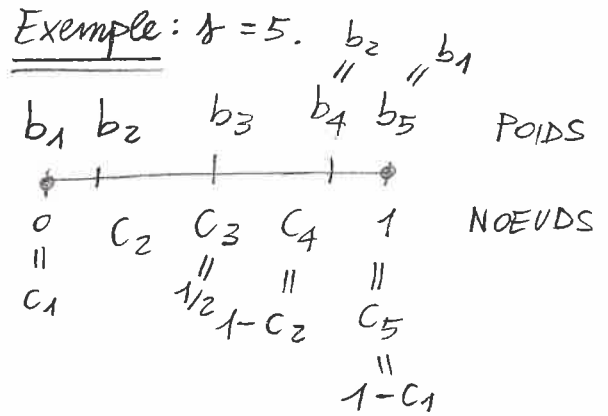 Exemple : s = 5.
b₂ b₁
= =
b₁ b₂ b₃ b₄ b₅ POIDS
0 C₂ C₃ C₄ 1 NOEUDS
= = = =
C₁ 1/2 1-C₂ C₅
=
1-C₁